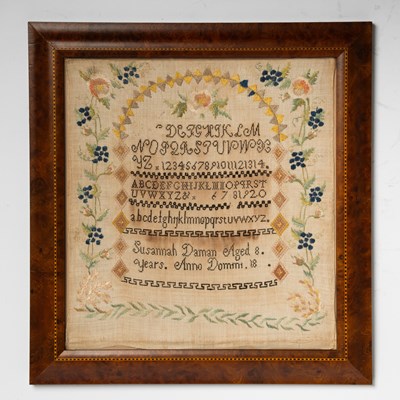 DEFGHIKLM
NOPQRSTUVWX
YZ. 1234567891011121314.
ABCDEFGHIJKLMNOPQRST
UVWXYZ&. 67 81920
abcdefghijklmnopqrstuvwxyz.
Susannah Daman Aged 8.
years. Anno Domini. 18